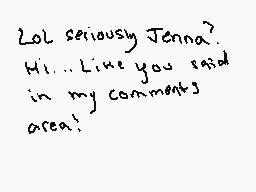 LOL seriously Jenna?
Hi... Like you said
in my comments
area!